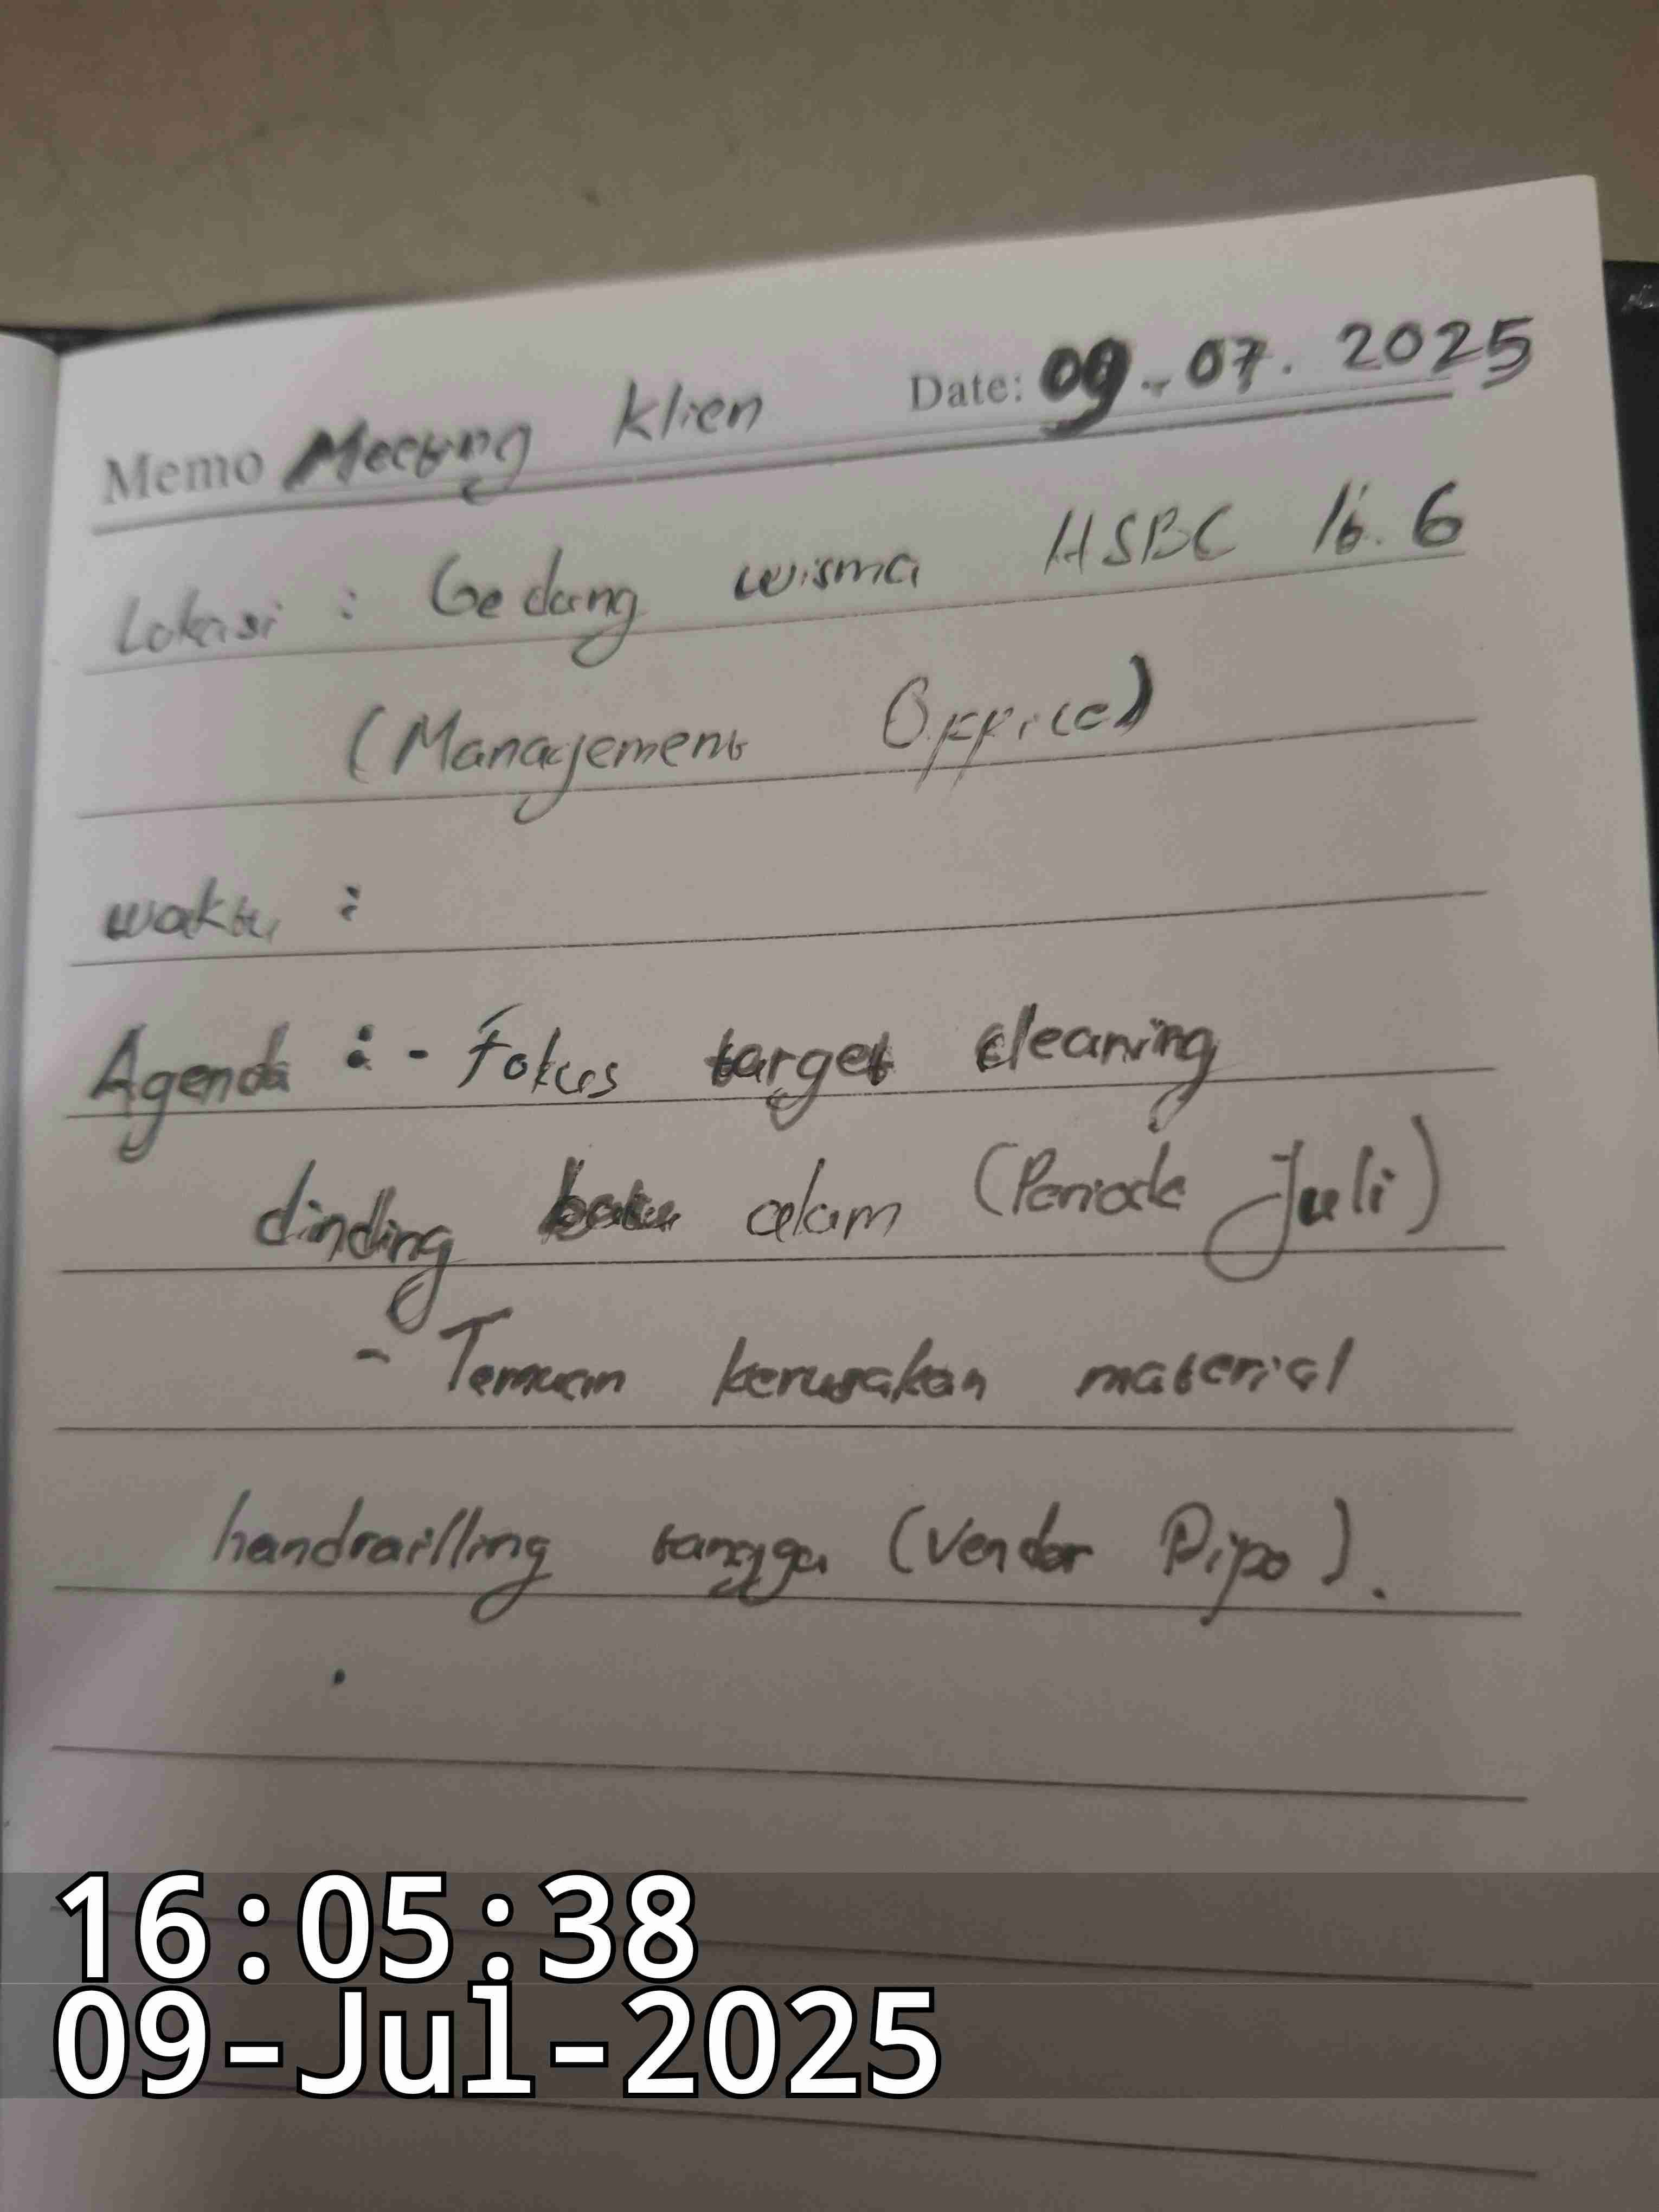 Memo Meeting Klien Date: 09-07.2025
Lokasi : Gedung wisma HSBC lt. 6
(Management Office)
waktu :
Agenda : - Fokus target cleaning
dinding batu alam (Periode Juli)
- Temuan kerusakan material
handrailling tangga (Vendor Dipo).
16:05:38
09-Jul-2025